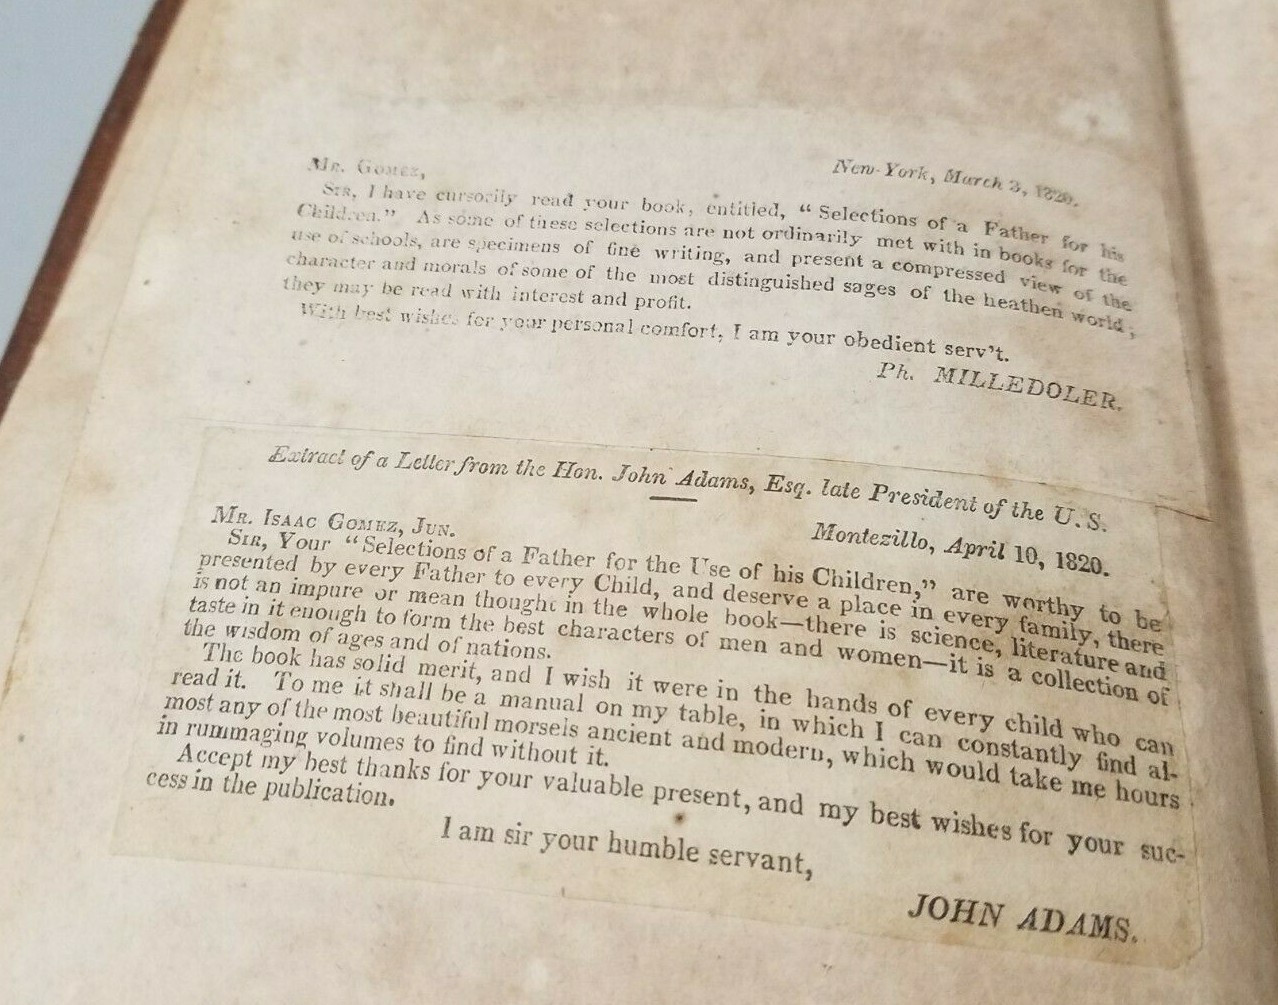 New-York, March 3, 1820.
Mr. Gomez,
Sir, I have cursorily read your book, entitled, “Selections of a Father for his
Children.” As some of these selections are not ordinarily met with in books for the
use of schools, are specimens of fine writing, and present a compressed view of the
character and morals of some of the most distinguished sages of the heathen world;
they may be read with interest and profit.
With best wishes for your personal comfort, I am your obedient serv't.
Ph. MILLEDOLER.
Extract of a Letter from the Hon. John Adams, Esq. late President of the U. S.
Montezillo, April 10, 1820.
Mr. Isaac Gomez, Jun.
Sir, Your “Selections of a Father for the Use of his Children,” are worthy to be
presented by every Father to every Child, and deserve a place in every family, there
is not an impure or mean thought in the whole book—there is science, literature and
taste in it enough to form the best characters of men and women—it is a collection of
the wisdom of ages and of nations.
The book has solid merit, and I wish it were in the hands of every child who can
read it. To me it shall be a manual on my table, in which I can constantly find al-
most any of the most beautiful morsels ancient and modern, which would take me hours
in rummaging volumes to find without it.
Accept my best thanks for your valuable present, and my best wishes for your suc-
cess in the publication.
I am sir your humble servant,
JOHN ADAMS.